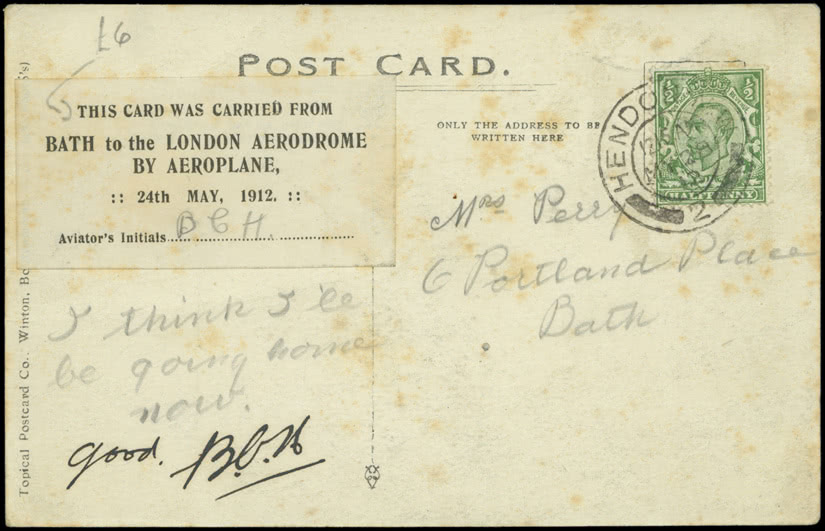 £6
POST CARD.
THIS CARD WAS CARRIED FROM
BATH to the LONDON AERODROME
BY AEROPLANE,
:: 24th MAY, 1912. ::
Aviator's Initials BCH
ONLY THE ADDRESS TO BE
WRITTEN HERE
HENDO
2
½ ½
HALFPENNY
Mrs Perry
6 Portland Place
Bath
I think I'le
be going home
now.
good. B.C.H
Topical Postcard Co., Winton, Bo
's)